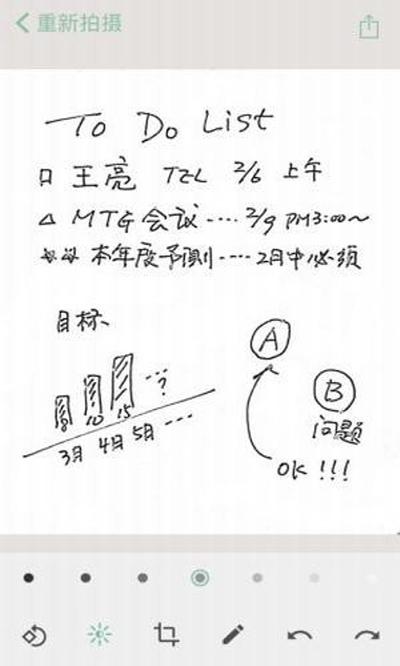 重新拍摄
To Do List
口 王亮 TEL 2/6 上午
△ MTG 会议 ···· 2/9 PM3:00~
※※ 本年度予测 ···· 2月中必须
目标、
8 10 15 ···?
3月 4月 5月 ···
A
B
问题
OK !!!